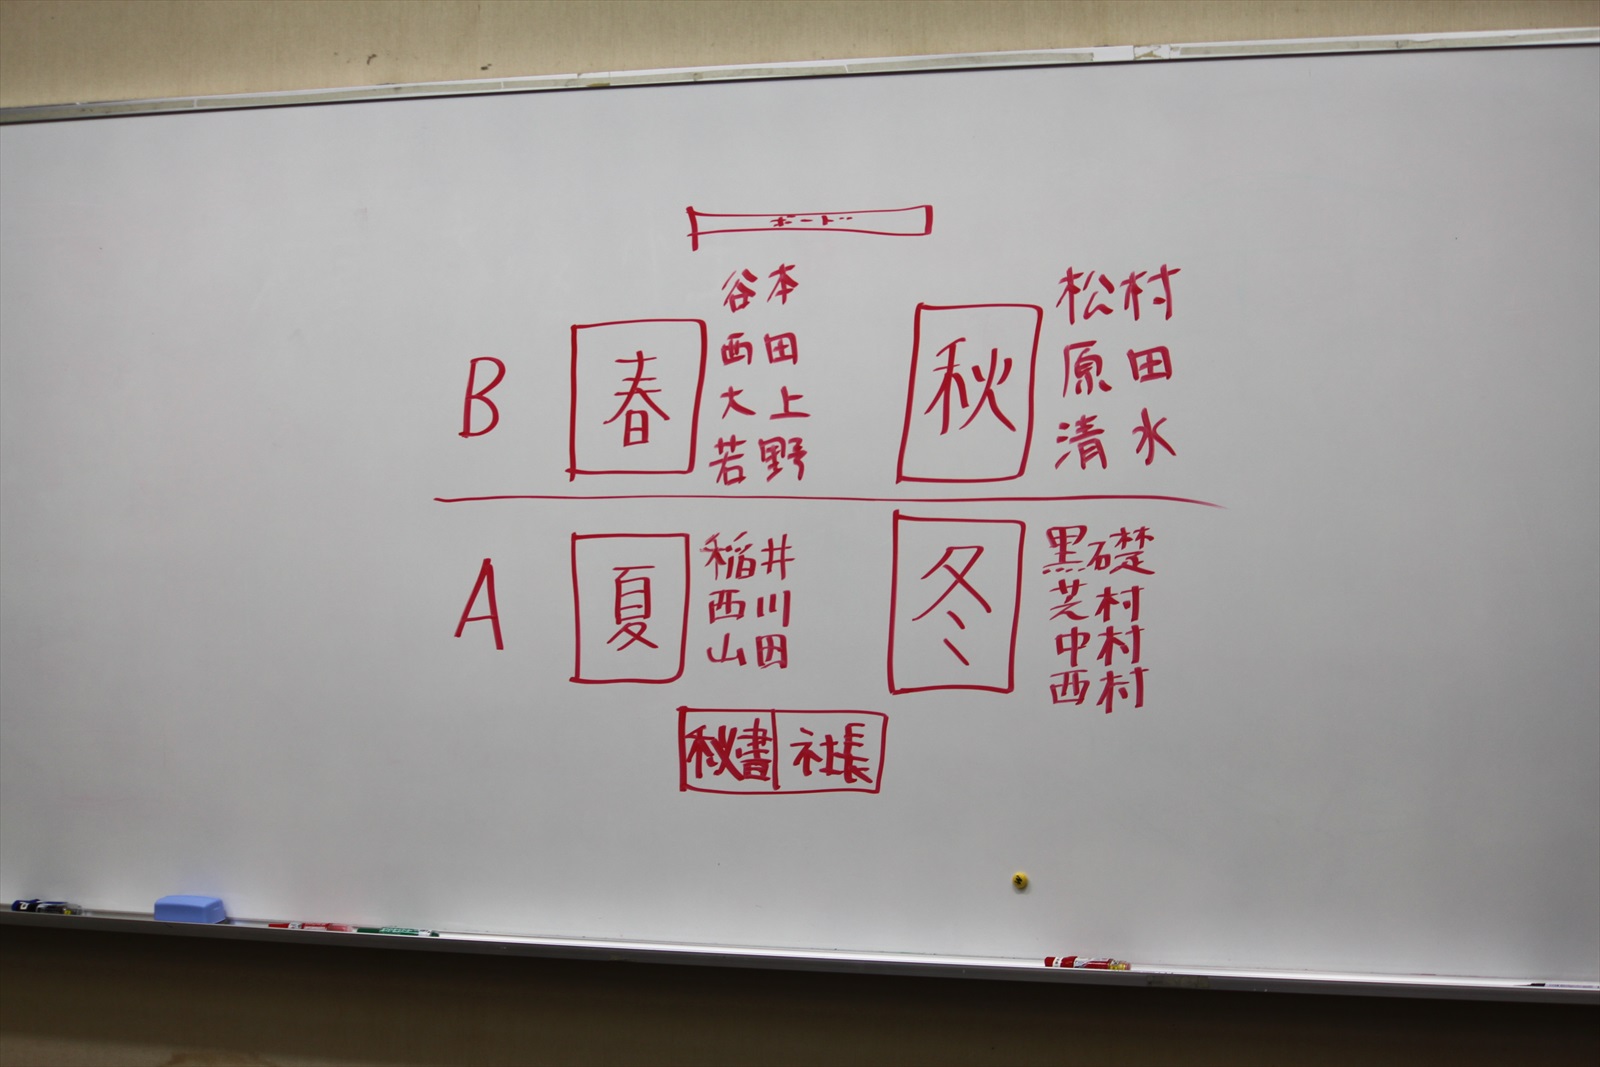 ボード
B
春
谷本
西田
大上
若野
秋
松村
原田
清水
A
夏
稲井
西川
山田
冬
黒礎
芝村
中村
西村
秋書
社長